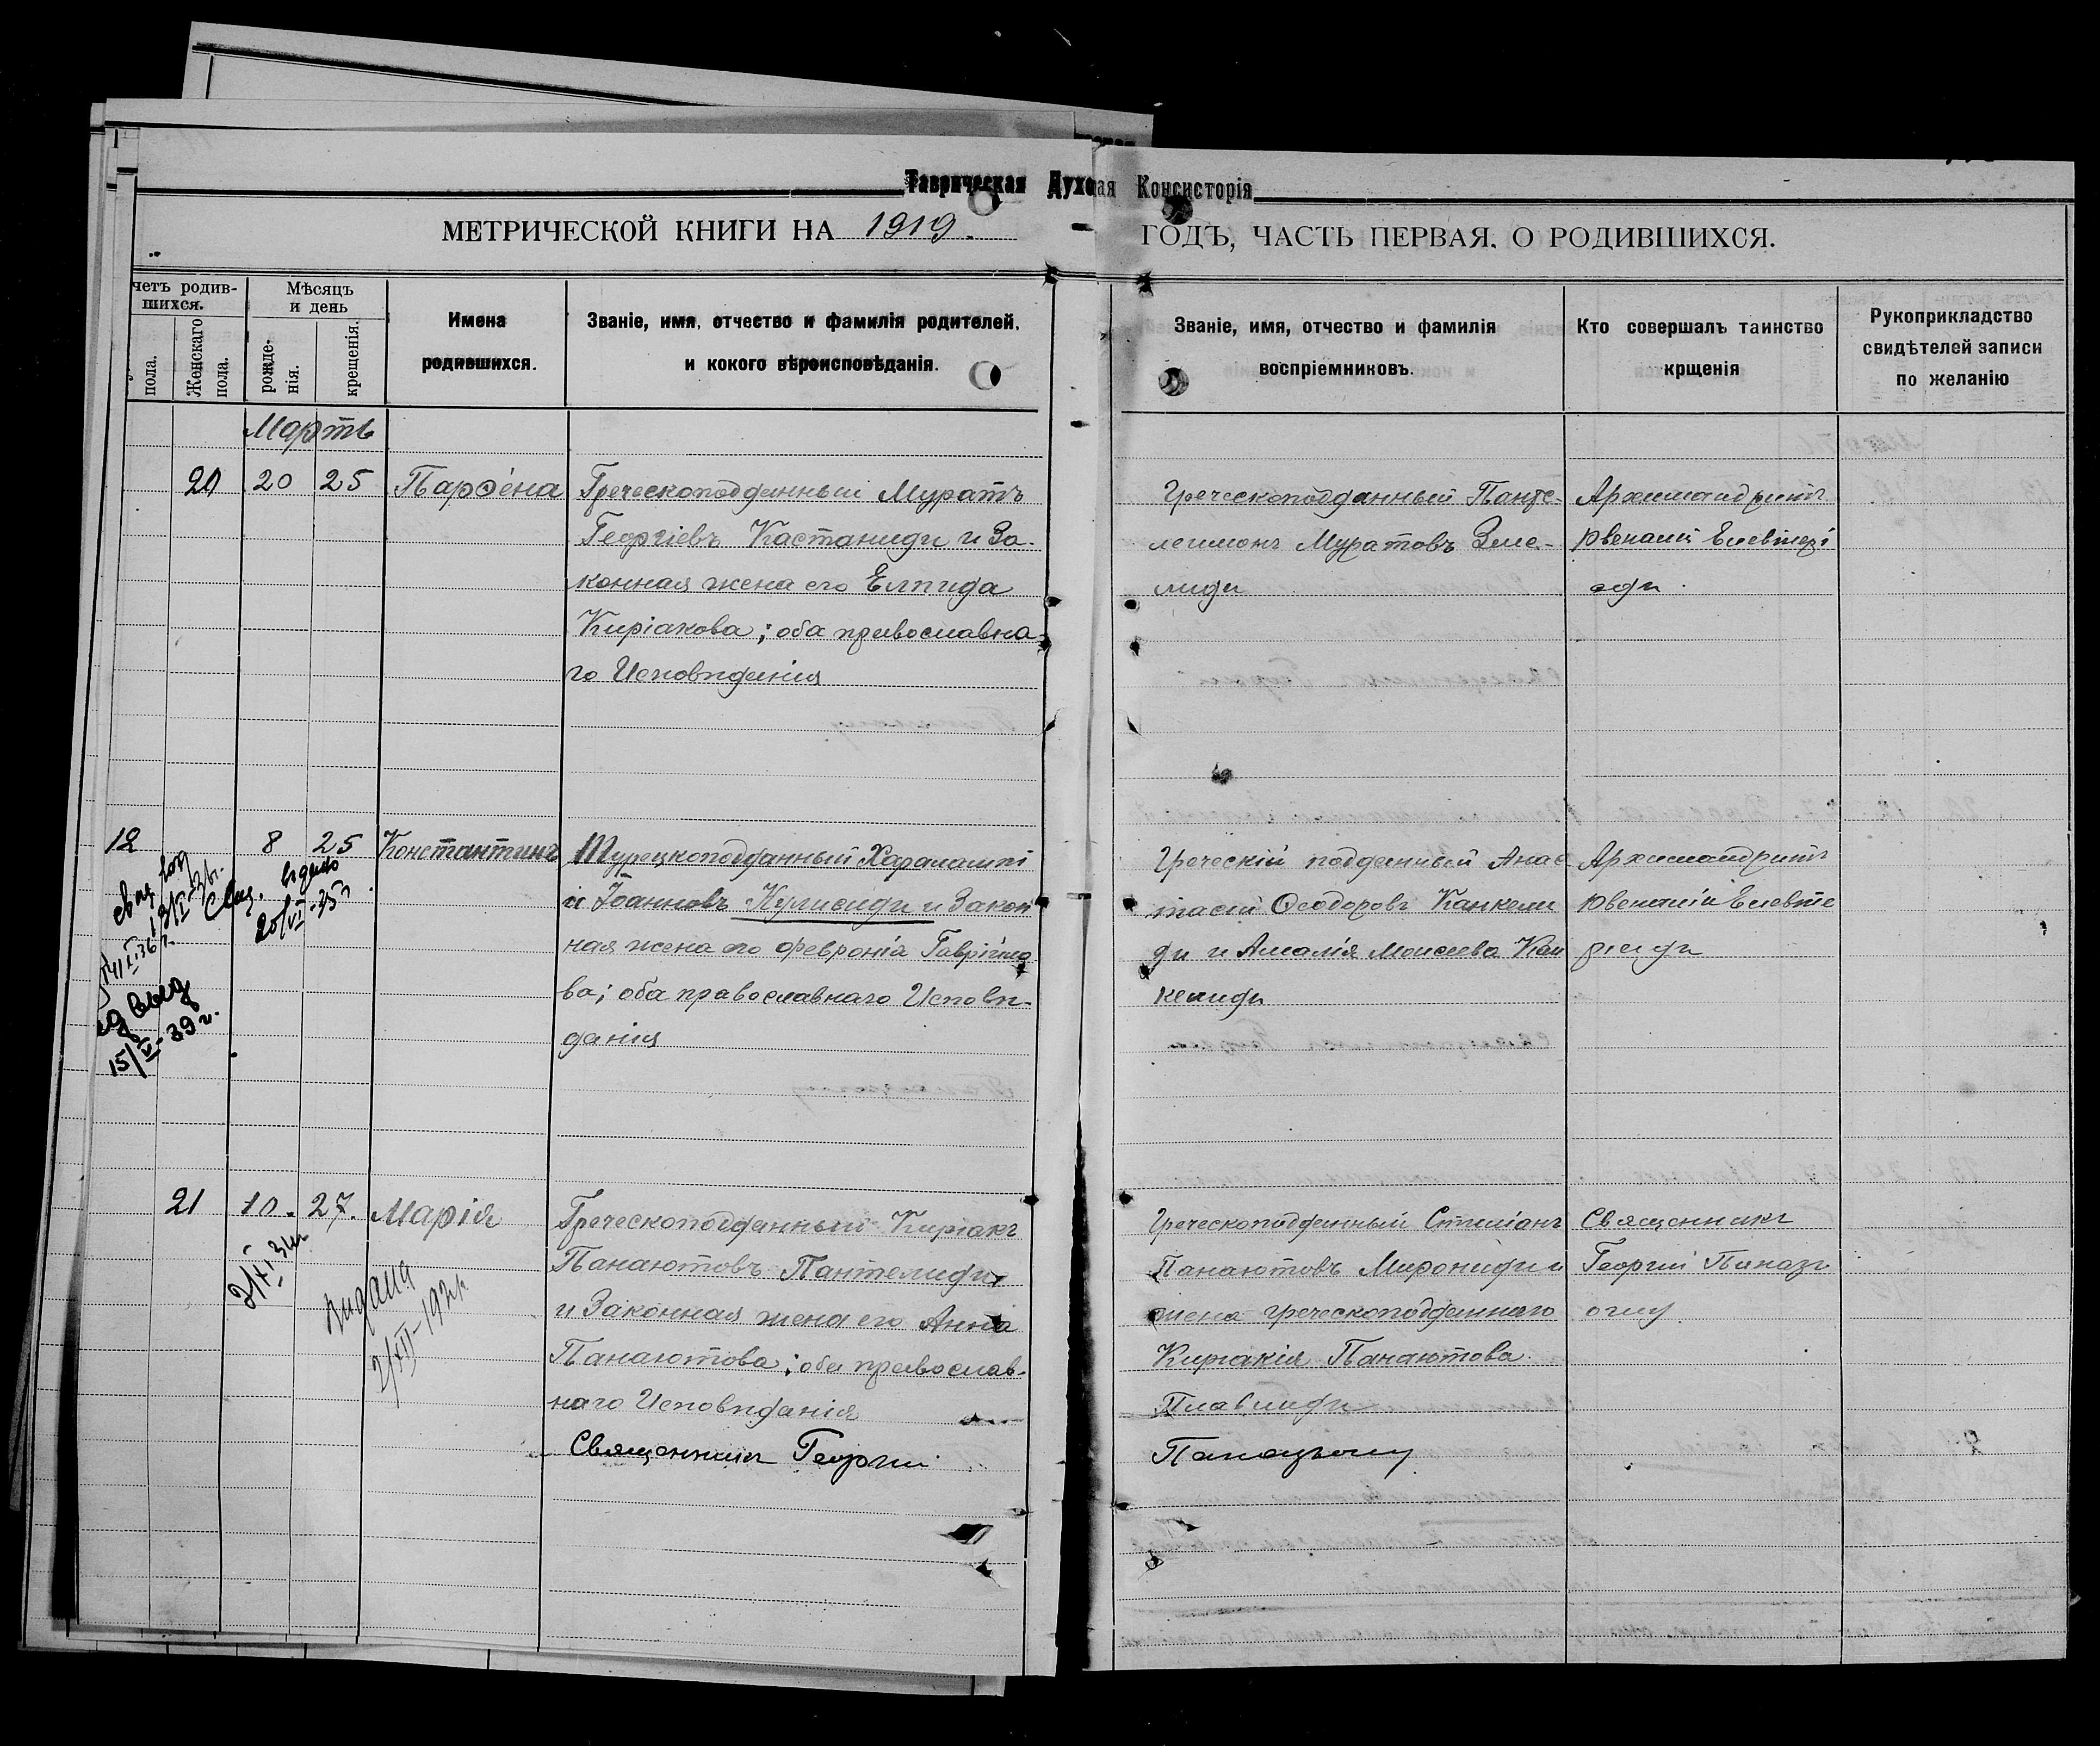 Таврическая Духовая Консисторія
МЕТРИЧЕСКОЙ КНИГИ НА 1919. ГОДЪ, ЧАСТЬ ПЕРВАЯ, О РОДИВШИХСЯ.
четъ родив-
шихся.
пола.
Женскаго
пола.
Мѣсяцъ
и день
рожде-
нія.
крещенія.
Имена
родившихся.
Званіе, имя, отчество и фамилія родителей,
и кокого вѣроисповѣданія.
Званіе, имя, отчество и фамилія
воспріемниковъ.
Кто совершалъ таинство
крщенія
Рукоприкладство
свидѣтелей записи
по желанію
Мартъ
20 20 25 Парѳена
Греческоподданный Муратъ
Георгіевъ Кастаниди и За-
конная жена его Елпида
Киріакова; оба православна-
го Исповѣданія
Греческоподданный Панте-
леимонъ Муратовъ
лиди
Архимандритъ
12 8 25 Константинъ
Турецкоподданный Харалампі
й Іоанновъ Кулисиди и Закон
ная жена его Февронія Гавріило
ва; оба православнаго Исповѣ-
данія
Греческій подданный Анас
тасій Ѳеодоровъ Канкели
ди и Амалія Моисеева Кан
келиди
Архимандритъ
Ювеналій Елевте
ріиди
выдано
15/V-39г.
21 10. 27. Марія
Греческоподданный Киріакъ
Панаютовъ Пантелиди
и Законная жена его Анна
Панаютова; оба православ-
наго Исповѣданія
Священникъ Георгій
Греческоподданный Стиліанъ
Панаютовъ Мирониди и
жена греческоподданнаго
Киріакія Панаютова
Павлиди
Священникъ
Георгій
Выдана